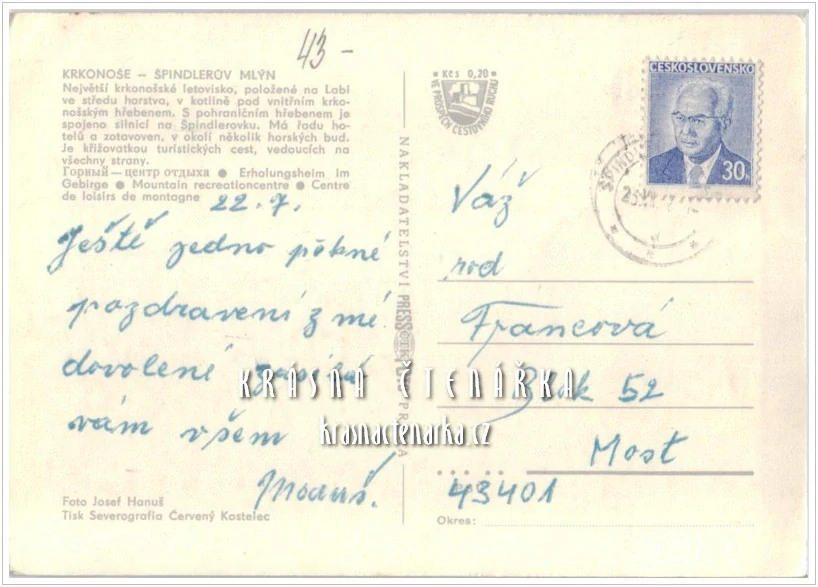 43-
KRKONOŠE – ŠPINDLERŮV MLÝN
Největší krkonošské letovisko, položené na Labi
ve středu horstva, v kotlině pod vnitřním krko-
nošským hřebenem. S pohraničním hřebenem je
spojeno silnicí na Špindlerovku. Má řadu ho-
telů a zotavoven, v okolí několik horských bud.
Je křižovatkou turistických cest, vedoucích na
všechny strany.
Горный — центр отдыха ● Erholungsheim im
Gebirge ● Mountain recreationcentre ● Centre
de loisirs de montagne
22.7.
Ještě jedno pěkné
pozdravení z mé
dovolené
vám všem
Foto Josef Hanuš
Tisk Severografia Červený Kostelec
NAKLADATELSTVÍ PRESSFOTO PRAHA
Kčs 0,20
VE PROSPĚCH CESTOVNÍHO RUCHU
ČESKOSLOVENSKO
30h
Váž
rod
Francová
Blok 52
Most
43401
Okres:
KRÁSNÁ ČTENÁŘKA
krasnactenarka.cz